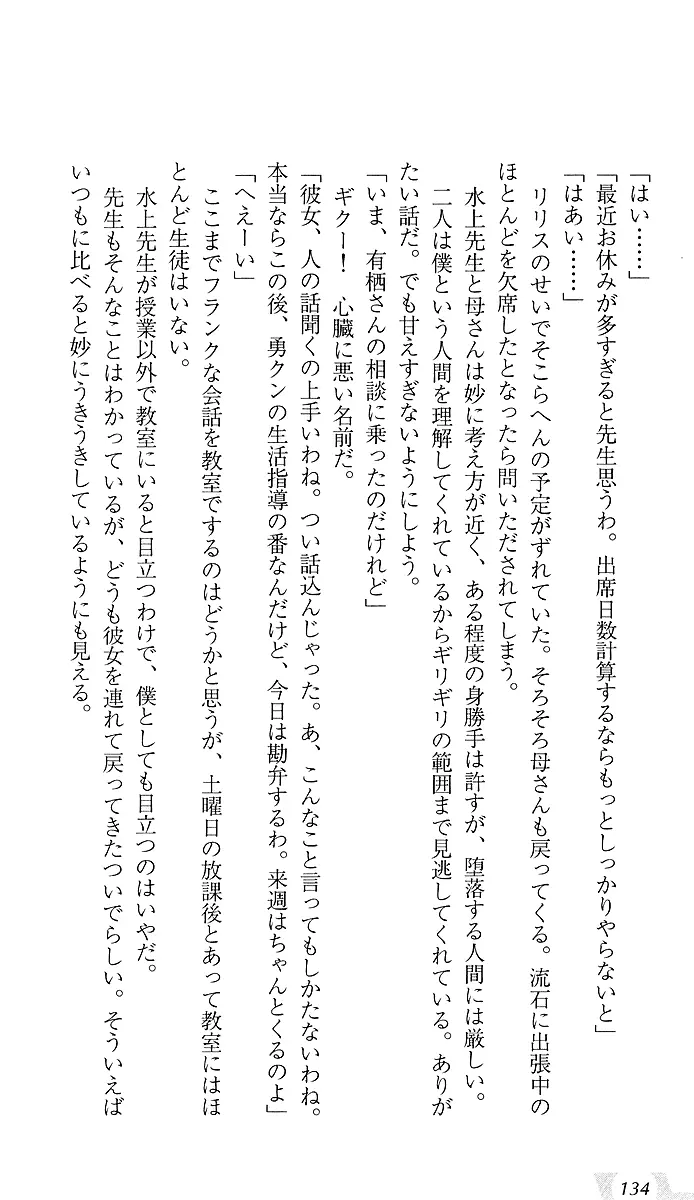 「はい……」
「最近お休みが多すぎると先生思うわ。出席日数計算するならもっとしっかりやらないと」
「はあい……」
　リリスのせいでそこらへんの予定がずれていた。そろそろ母さんも戻ってくる。流石に出張中の
ほとんどを欠席したとなったら問いただされてしまう。
　水上先生と母さんは妙に考え方が近く、ある程度の身勝手は許すが、堕落する人間には厳しい。
　二人は僕という人間を理解してくれているからギリギリの範囲まで見逃してくれている。ありが
たい話だ。でも甘えすぎないようにしよう。
「いま、有栖さんの相談に乗ったのだけれど」
　ギクー！　心臓に悪い名前だ。
「彼女、人の話聞くの上手いわね。つい話込んじゃった。あ、こんなこと言ってもしかたないわね。
本当ならこの後、勇クンの生活指導の番なんだけど、今日は勘弁するわ。来週はちゃんとくるのよ」
「へえーい」
　ここまでフランクな会話を教室でするのはどうかと思うが、土曜日の放課後とあって教室にはほ
とんど生徒はいない。
　水上先生が授業以外で教室にいると目立つわけで、僕としても目立つのはいやだ。
　先生もそんなことはわかっているが、どうも彼女を連れて戻ってきたついでらしい。そういえば
いつもに比べると妙にうきうきしているようにも見える。
134